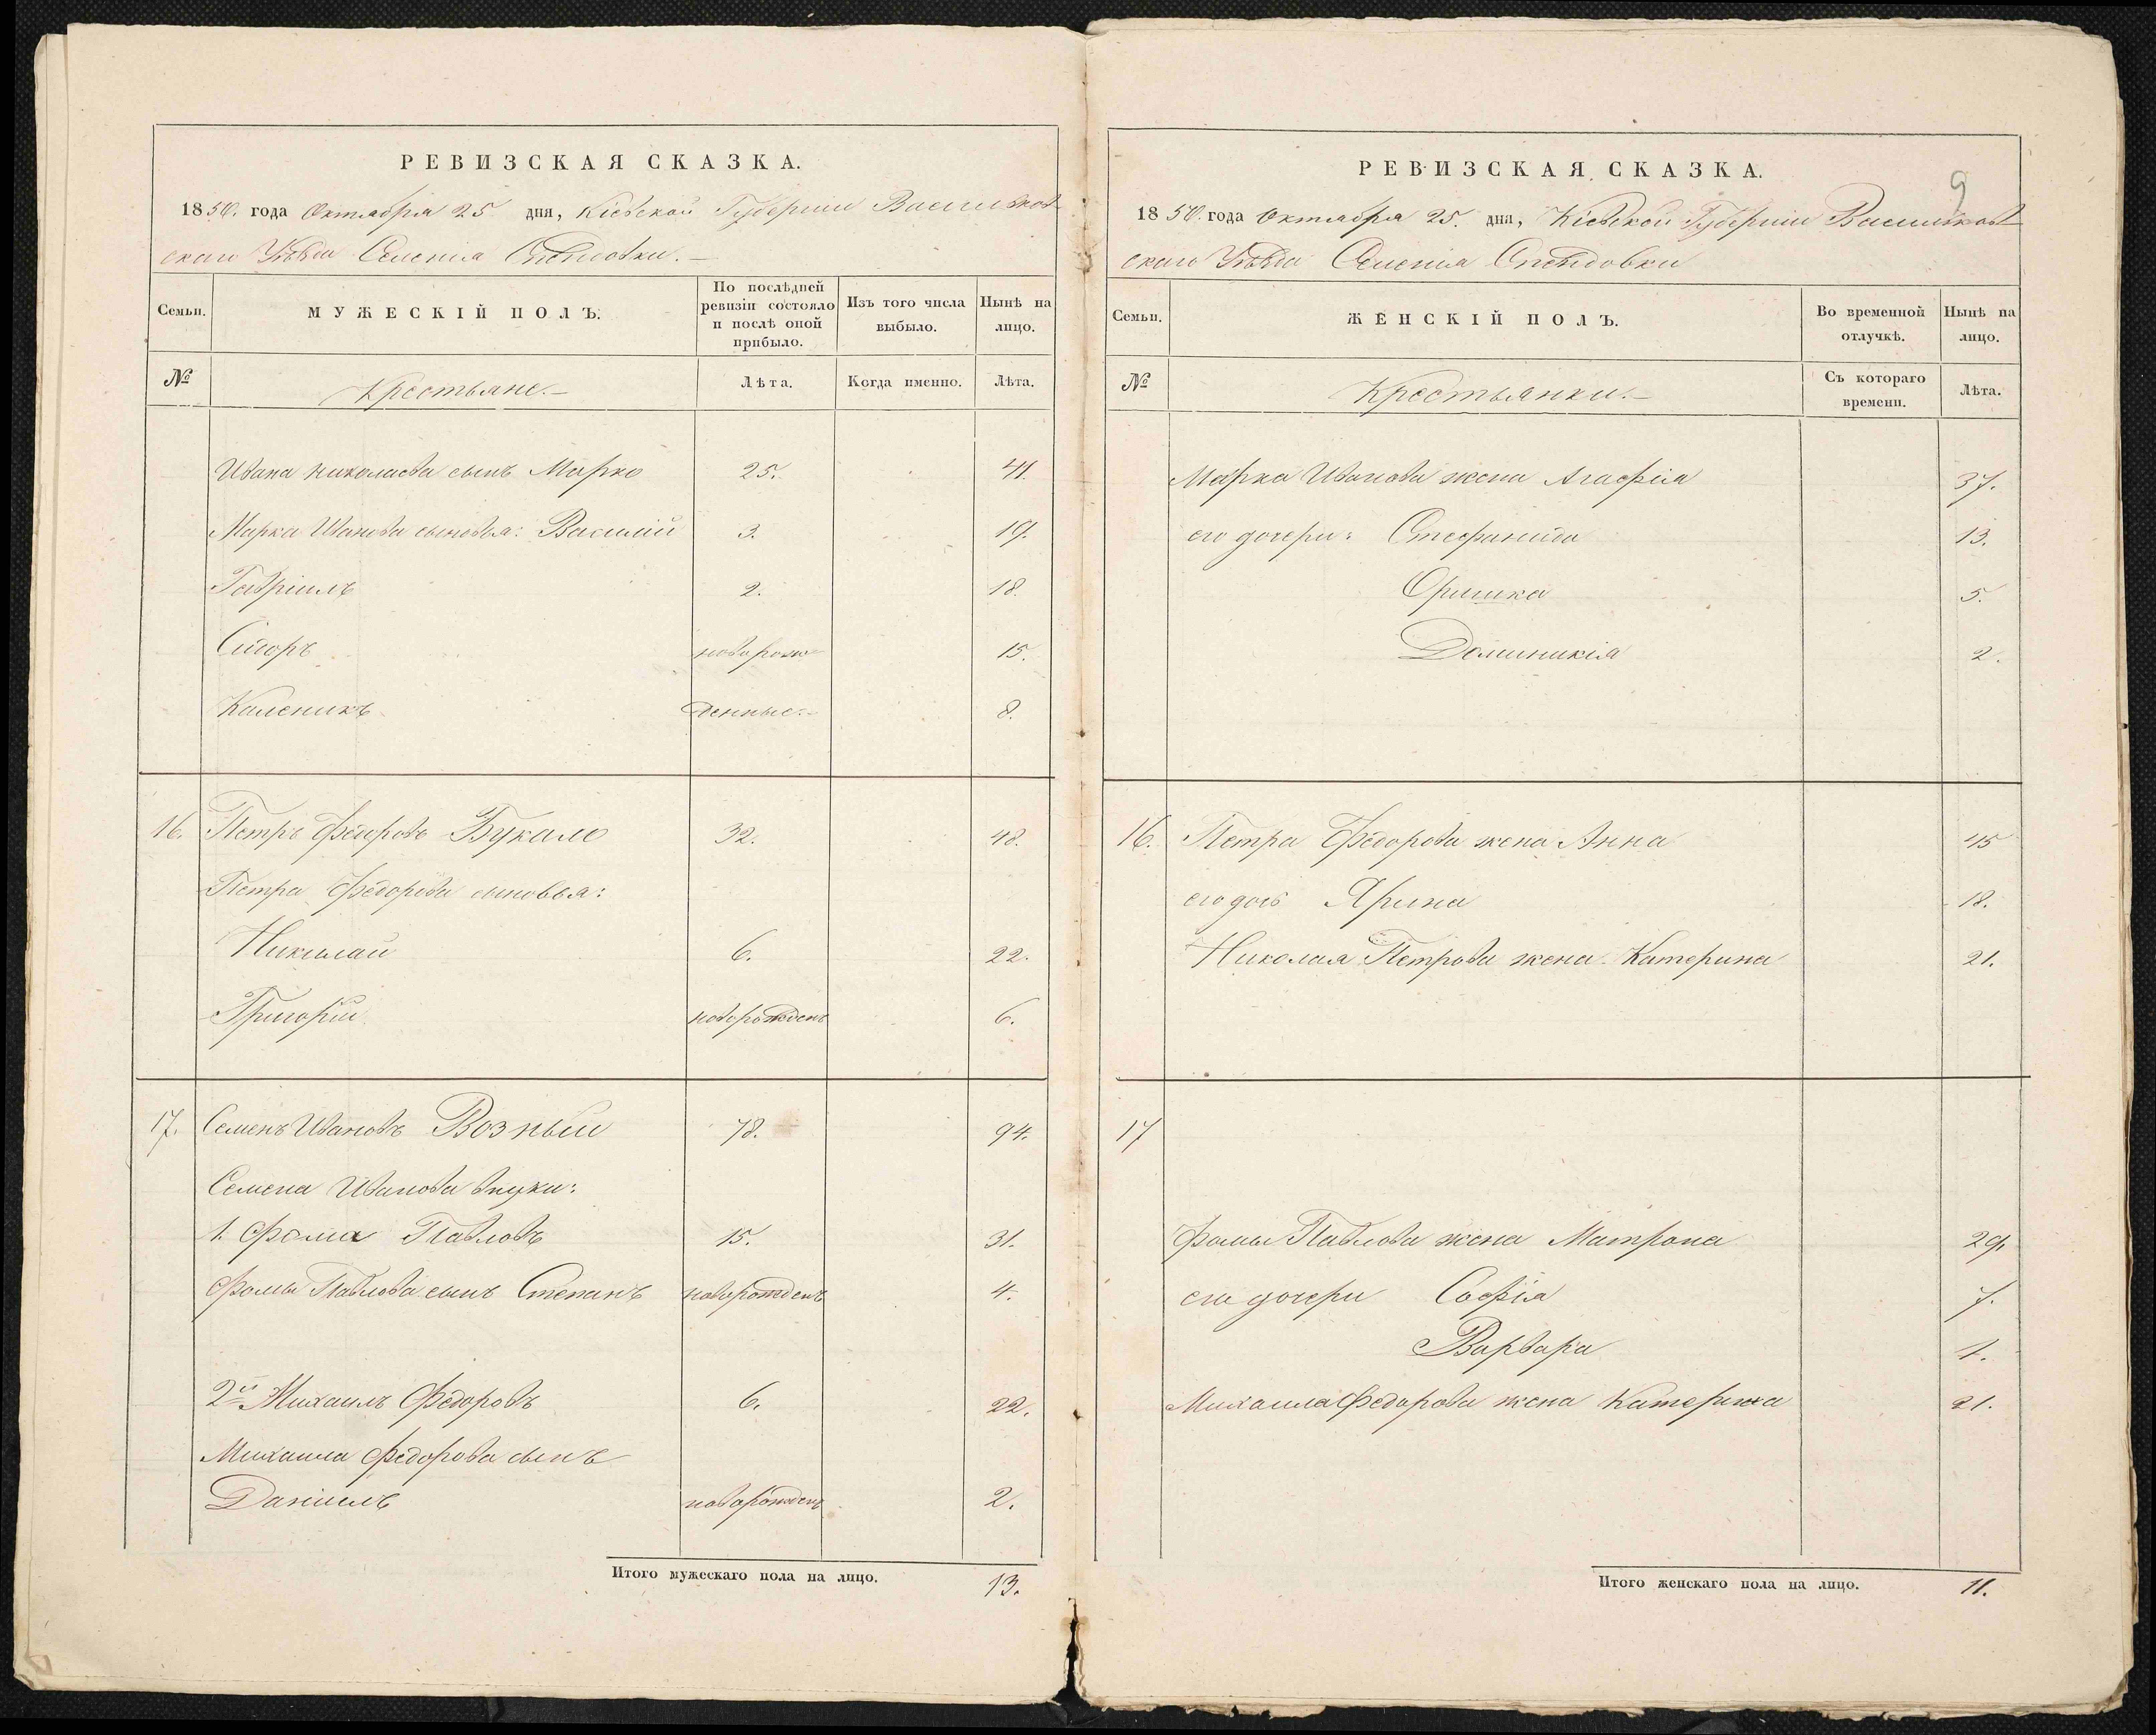 РЕВИЗСКАЯ СКАЗКА.
1850. года Октября 25 дня, Кіевской Губерніи Васильков-
скаго Уѣзда Селенія
Семьи.
МУЖЕСКІЙ ПОЛЪ.
По послѣдней
ревизіи состояло
и послѣ оной
прибыло.
Изъ того числа
выбыло.
Нынѣ на
лицо.
№
Крестьяне.—
Лѣта.
Когда именно.
Лѣта.
Ивана Николаева сынъ Марко 25. 41.
Марка Иванова сыновья: Василій 3. 19.
Гавріилъ 2. 18.
Сидоръ новорож- 15.
Каленикъ денные.— 8.
16. Петръ Федоровъ Букало 32. 48.
Петра Федорова сыновья:
Николай 6. 22.
Григорій новорожденъ 6.
17. Семенъ Ивановъ Возный 78. 94.
Семена Иванова внуки:
1. Фома Павловъ 15. 31.
Фомы Павлова сынъ Степанъ новорожденъ 4.
2й Михаилъ Федоровъ 6. 22.
Михаила Федорова сынъ
Даніилъ новорожденъ 2.
Итого мужескаго пола на лицо. 13.
9
РЕВИЗСКАЯ СКАЗКА.
1850. года Октября 25. дня, Кіевской Губерніи Васильков-
скаго Уѣзда Селенія
Семьи.
ЖЕНСКІЙ ПОЛЪ.
Во временной
отлучкѣ.
Нынѣ на
лицо.
№
Крестьянки.—
Съ котораго
времени.
Лѣта.
Марка Иванова жена Агафія 37.
его дочери: Стефанида 13.
Оришка 5.
Доминикія 2.
16. Петра Федорова жена Анна 45
его дочь Ярина 18.
Николая Петрова жена Катерина 21.
17
Фомы Павлова жена Матрона 29.
его дочери Софія 7.
Варвара 1.
Михаила Федорова жена Катерина 21.
Итого женскаго пола на лицо. 11.